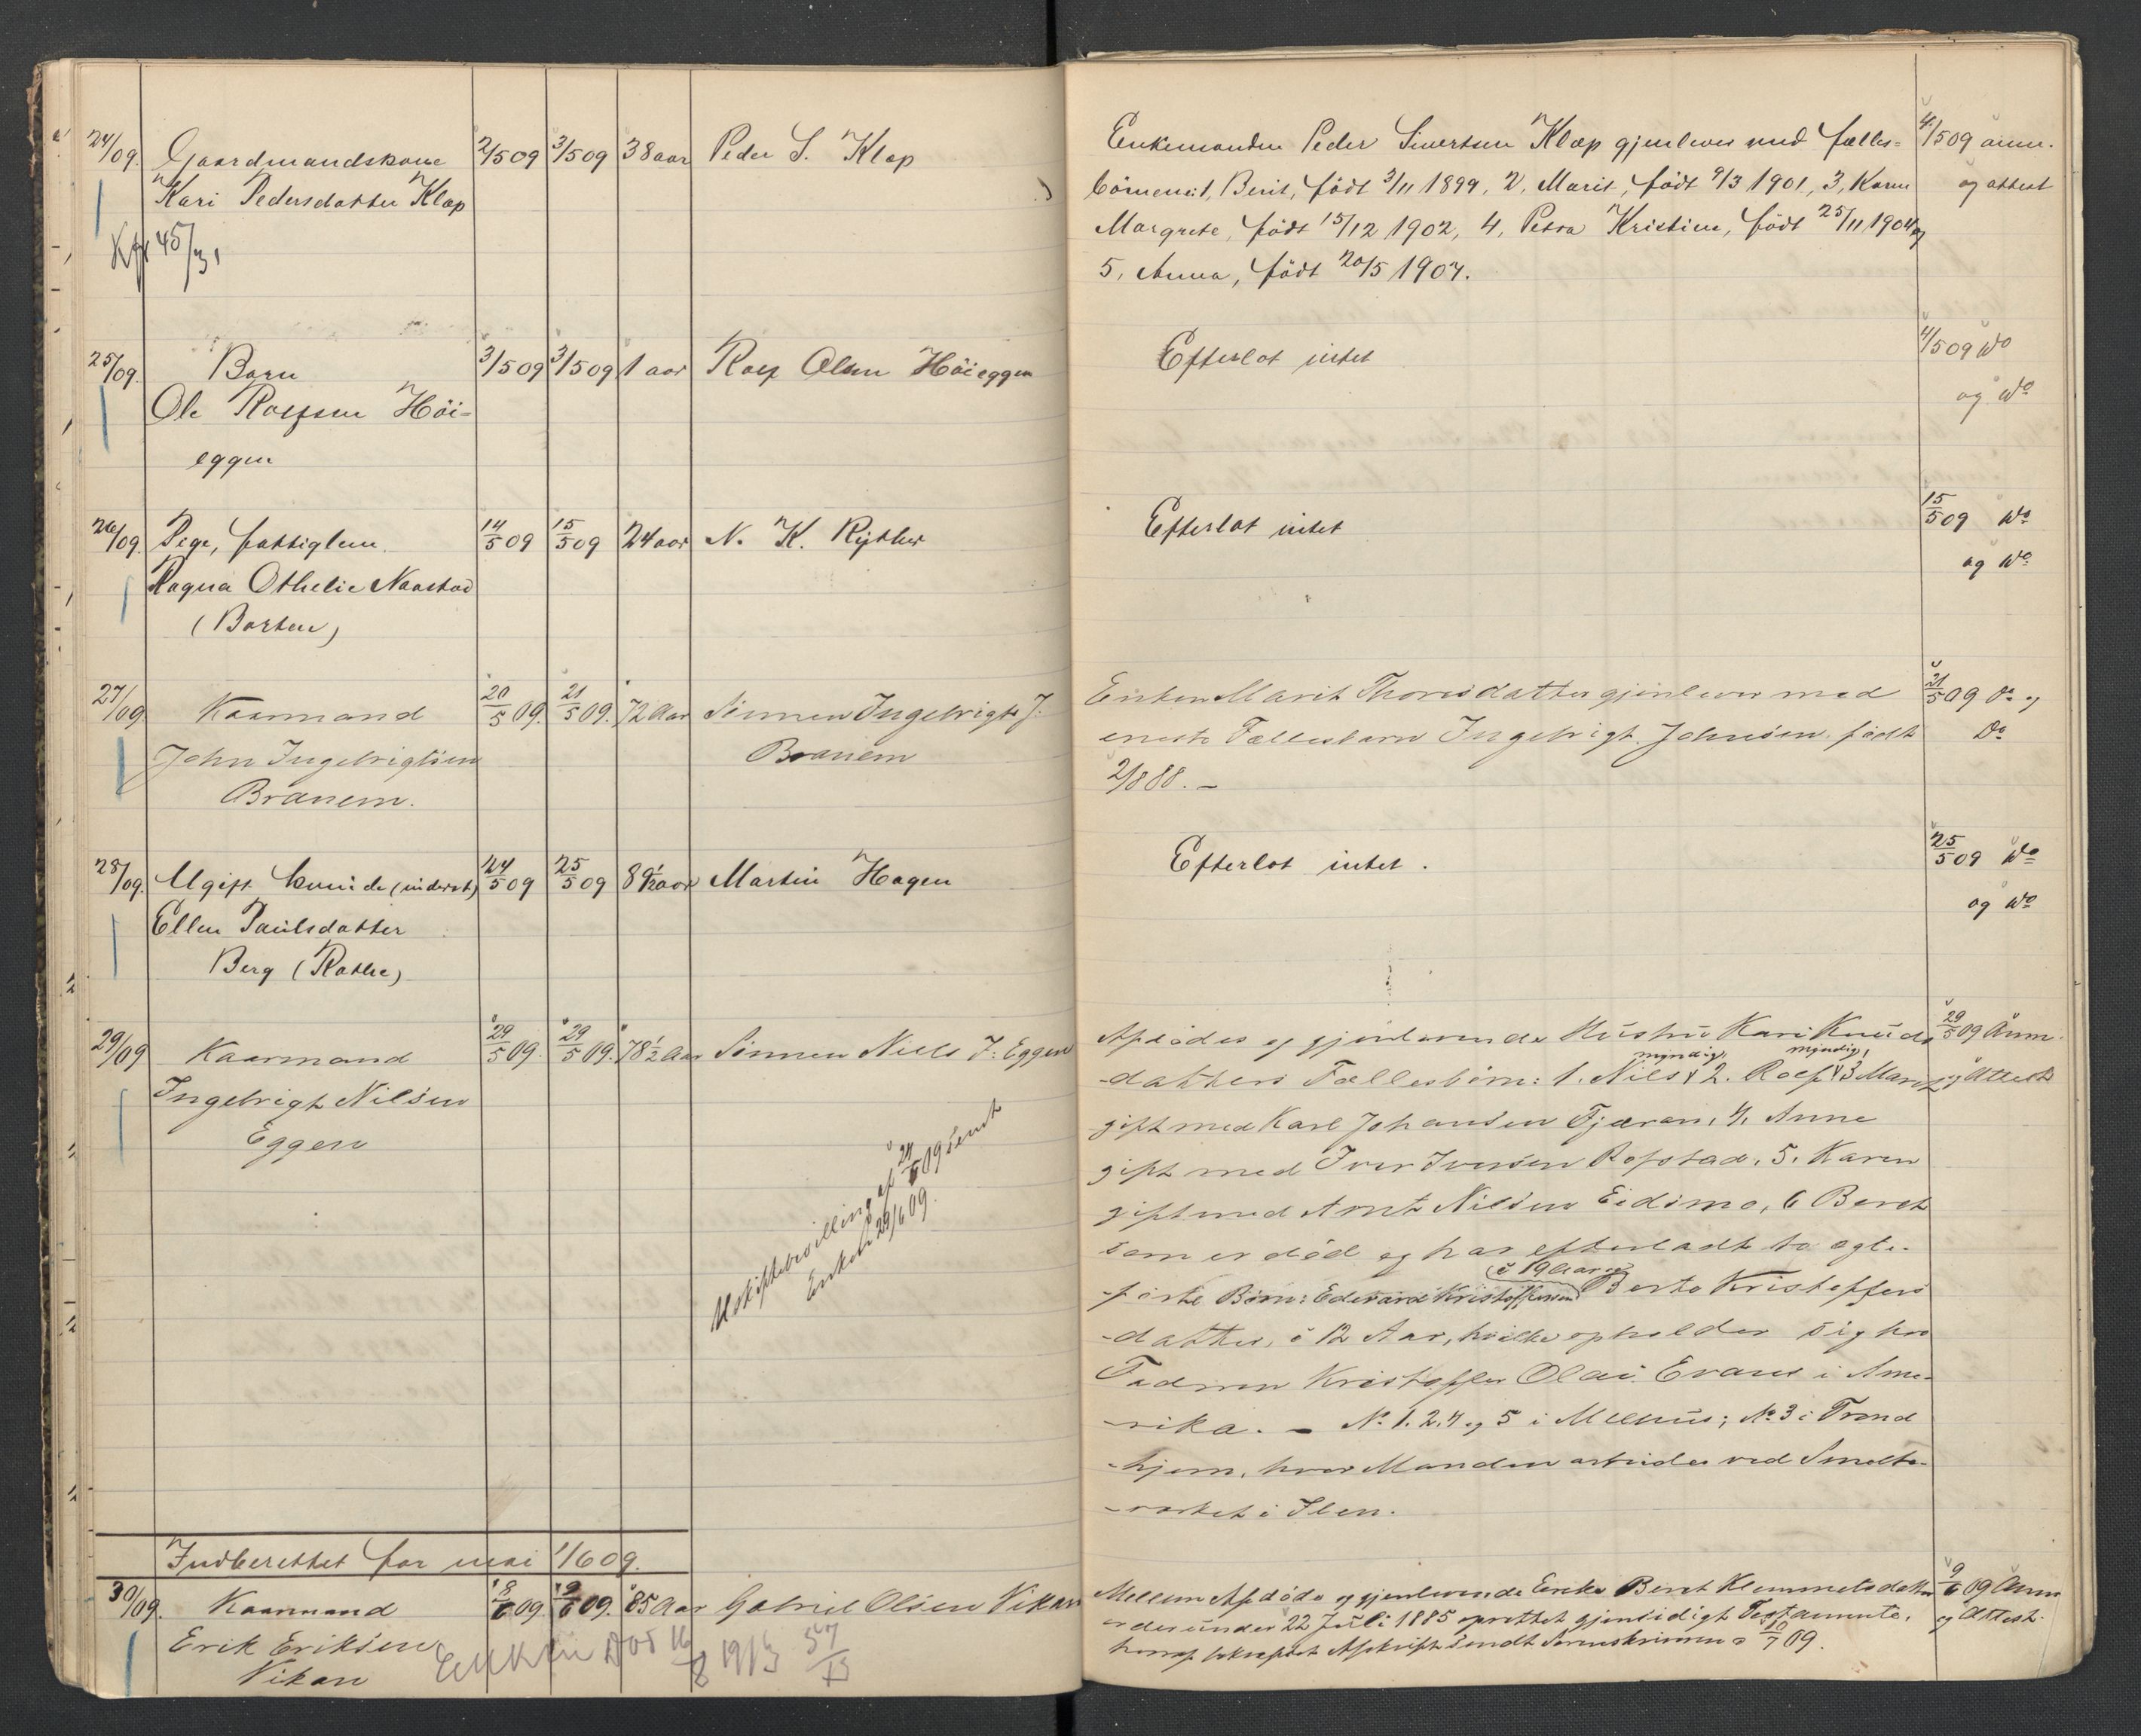 24/09. Gaardmandskone 2/5 09 3/5 09 38 aar Peder S. Klæp
Kari Pedersdatter Klæp
Kfr 45/31
Enkemanden Peder Sivertsen Klæp gjenlever med fælles- 4/5 09 anm.
börnene: 1, Berit, födt 3/11 1899, 2, Marit, födt 9/3 1901, 3, Karen og attest
Margrete, födt 15/12 1902, 4, Petra Kristine, födt 25/11 1904 og
5, Anna, födt 20/5 1907.
25/09. Barn 3/5 09 3/5 09 1 aar Rolf Olsen Höieggen
Ole Rolfsen Höi-
eggen
Efterlot intet 4/5 09 do
og do
26/09. Pige, fattiglem 14/5 09 15/5 09 24 aar N. K. Rÿther
Ragna Othelie Naastad
(Borten)
Efterlot intet 15/5 09 do
og do
27/09 Kaarmand 20/5 09. 21/5 09. 72 Aar Sönnen Ingebrigt J.
John Ingebrigtsen Branem
Branem.
Enken Marit Thoresdatter gjenlever med 21/5 09 Do og
eneste Fællesbarn Ingebrigt Johnsen, födt Do
2/8 88. –
28/09. Ugift kvinde (inderst) 24/5 09 25/5 09 89 1/2 aar Martin Hagen
Ellen Paulsdatter
Berg (Rathe)
Efterlot intet. 25/5 09 do
og do
29/09 Kaarmand 29/5 09. 29/5 09. 78 1/2 Aar Sönnen Niels J. Eggen
Ingebrigt Nilsen
Eggen
Uskiftebevilling af 29/5 09 sendt
Enken 29/6 09.
Afdödes og gjenlevende Hustru Kari Knuds 29/5 09 Anm.
-datters Fællesbörn: 1. Nils myndig, 2. Rolf myndig, 3 Marit og Attest
gift med Karl Johansen Fjæran, 4. Anne
gift med Iver Iversen Rofstad, 5. Karen
gift med Arnt Nilsen Eidsmo, 6 Beret
som er död og har efterladt to ægte-
födte Börn: Edevard Kristoffersen (i 19 Aar og) Berta Kristoffers
-datter, i 12 Aar, hvilke opholder sig hos
Fadren Kristoffer Olai Evans i Ame-
-rika. – No 1. 2. 4 og 5 i Melhus; No 3 i Trond
-hjem, hvor Manden arbeider ved Smelte-
-verket i Ilen.
Indberettet for mai 1/6 09.
30/09. Kaarmand 8/6 09. 9/6 09. 85 Aar Gabriel Olsen Vikan
Erik Eriksen
Vikan
Enken död 16/8 1913 57/13
Mellem Afdöde og gjenlevende Enke Beret Klemmetsdatter 9/6 09 Anm
er der under 22 Juli 1885 oprettet gjensidigt Testamente, og Attest.
hvoraf bekræftet Afskrift sendt Sorenskriveren 10/7 09.